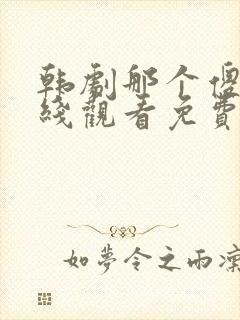 韩劇那个傻
綫觀看免費
如夢令之雨凜